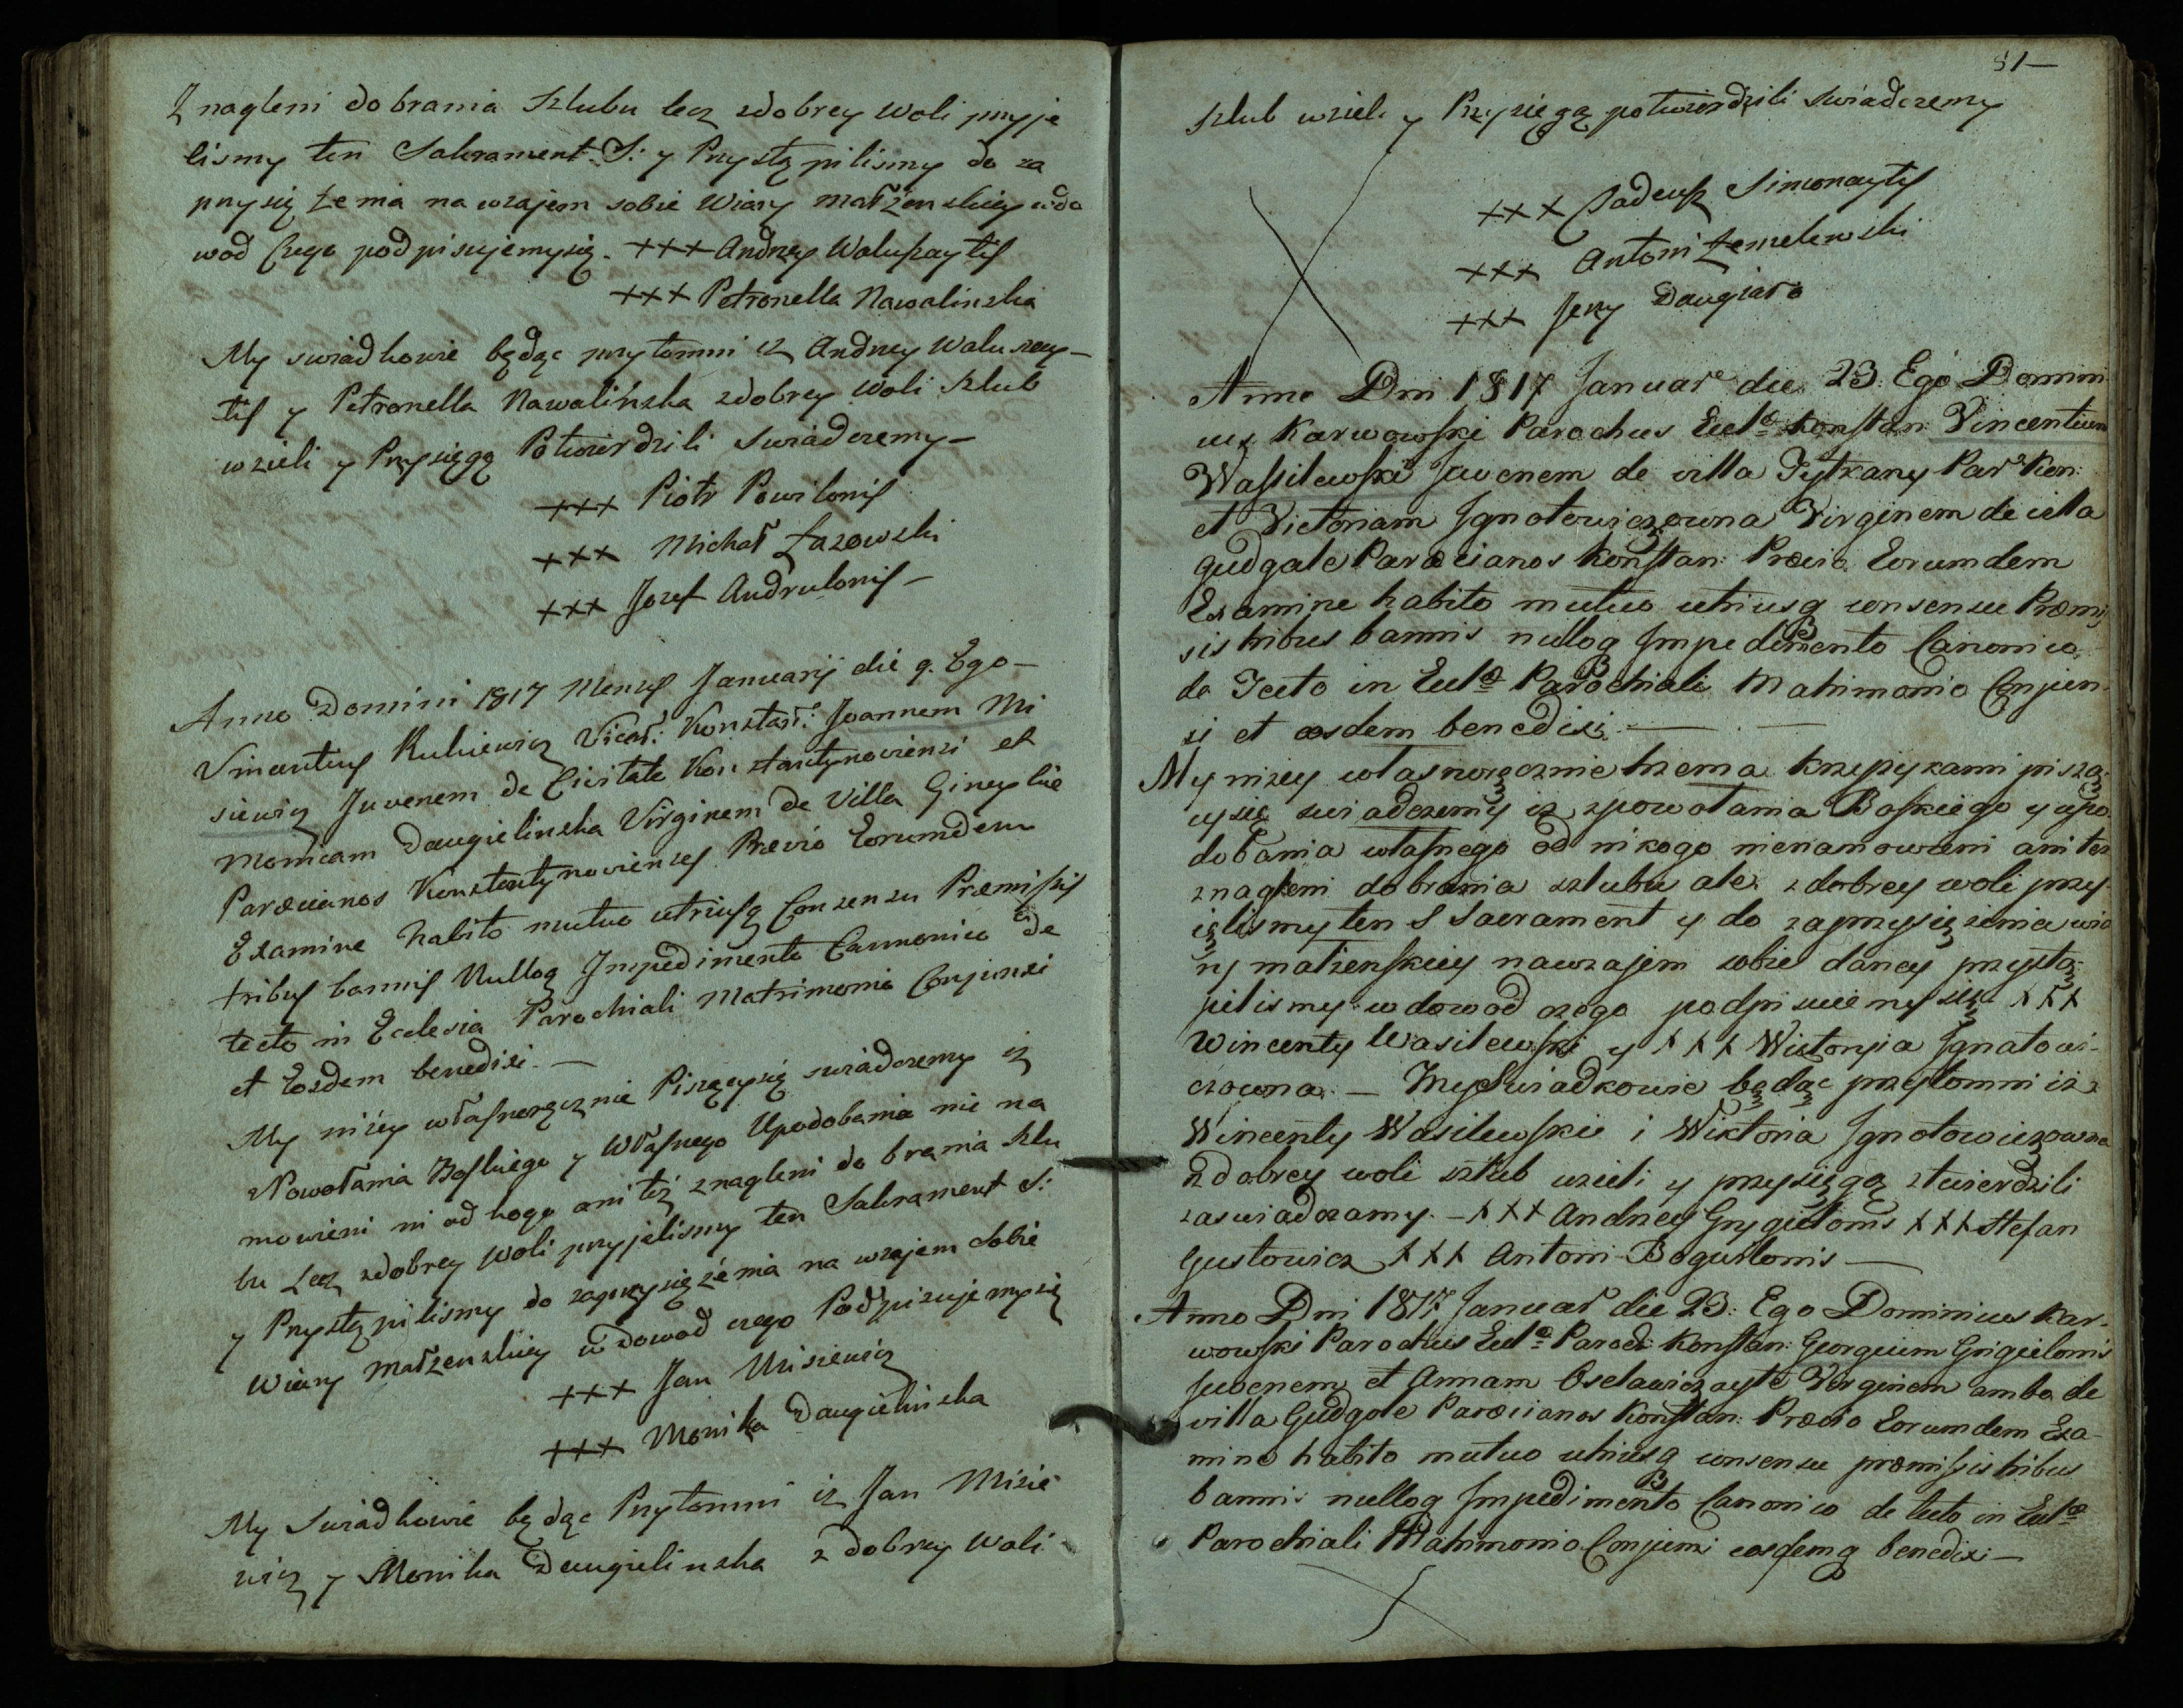 Znagleni do brania Szlubu lecz zdobrey Woli przyje
lismy ten Sakrament S: y Przystąpilismy do za
przysiężenia nawzajem sobie Wiary małżenskiey wdo
wod Czego podpisujemysię. +++ Andrzey Waluszaytis
+++ Petronella Nawalinska
My swiadkowie będąc przytomni iż Andrzey Waluszay-
tis y Petronella Nawalińska zdobrey Woli Szlub
wzieli y Przysięgą Potwierdzili Swiadczemy-
+++ Piotr Powilonis
+++ Michał Łazowski
+++ Jozef Andrulonis-
Anno Domini 1817 Mensis Januarij die 9. Ego-
Vincentius Rukiewicz Vicar: Konstan: Joannem Mi
siewicz Juvenem de Civitate Konstantynoviensi et
Monicam Daugielinska Virginem de Villa Gineybie
Parœcianos Konstantynovienses Prævio Eorumdem
Examine habito mutuo utriusq Consensu Præmissis
tribus bannis Nulloq Impedimento Cannonico De
tecto in Ecclesia Parochiali Matrimonio Conjunxi
et Eosdem benedixi.-
My niżey własnoręcznie Piszącysię swiadczemy iż
zPowołania Boskiego y Własnego Upodobania nie na
mowieni ni od kogo ani też znagleni do brania Szlu
bu Lecz zdobrey Woli przyjelismy ten Sakrament S:
y Przystąpilismy do zaprzysiężenia na wzajem sobie
Wiary małzenskiey w Dowod czego Podpisujemysię
+++ Jan Misiewicz
+++ Monika Daugielinska
My Swiadkowie będąc Przytomni iż Jan Misie
wicz y Monika Daugielinska z dobrey Woli
81-
szlub wzieli y Przysięgą potwierdzili swiadczemy
+++ Tadeusz Simonaytis
+++ Antoni Żemelewski
+++ Jerzy Daugiało
Anno Dni 1817 Januar die 23. Ego Domini
cus Karwowski Parochus Eccl Konstan Vincentium
Wassilewski Juvenem de villa Tytkany Par Kon:
et Victoriam Ignatowiczowna Virginem de villa
Gudgale Parœcianos Konstan: Prævio Eorumdem
Examine habito mutuo utriusq consensu Præmis
sis tribus bannis nulloq Impedimento Canonico
de Tecto in Eccl Parochiali Matrimonio Conjun
xi et eosdem benedixi.-
My nizey własnoręcznie trzema krzyżykami pisżą
cysię swiadczemy iż zpowołania Boskiego y upo
dobania własnego od nikogo nienamowieni ani też
znagleni do brania szlubu ale z dobrey woli przy
ielismy ten S Sacrament y do zaprzysiężenia wia
ry małzenskiey nawzajem sobie daney przystą
pilismy w dowod czego podpisuiemysię +++
Wincenty Wasilewski y +++ Wiktoryia Ignatowi-
czowna.- My Swiadkowie będąc przytomni iż
Wincenty Wasilewskie i Wiktoria Ignotowiczowna
z dobrey woli szlub wzieli y przysięgą ztwierdzili
zaswiadczamy.-+++ Andrzey Grygielonis +++ Stefan
Gustowicz +++ Antoni Bogusłonis-
Anno Dni 1817 Januar die 23. Ego Dominicus Kar-
wowski Parochus Eccl Paroch: Konstan: Georgium Grigielonis
Juvenem et Annam Oselawiczayte Virginem ambo de
villa Gudgole Parœcianos Konstan: Prævio Eorumdem Exa-
mine habito mutuo utriusq consensu præmissis tribus
bannis nulloq Impedimento Canonico detecto in Eccl
Parochiali Matrimonio Conjunxi eosdemq benedixi-